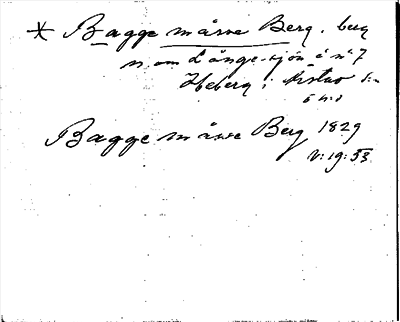 * Bagge måsse Berg. berg
n om Långe-sjön å nº 7
Heberg i
Bagge måsse Berg 1829
V: 19: 53